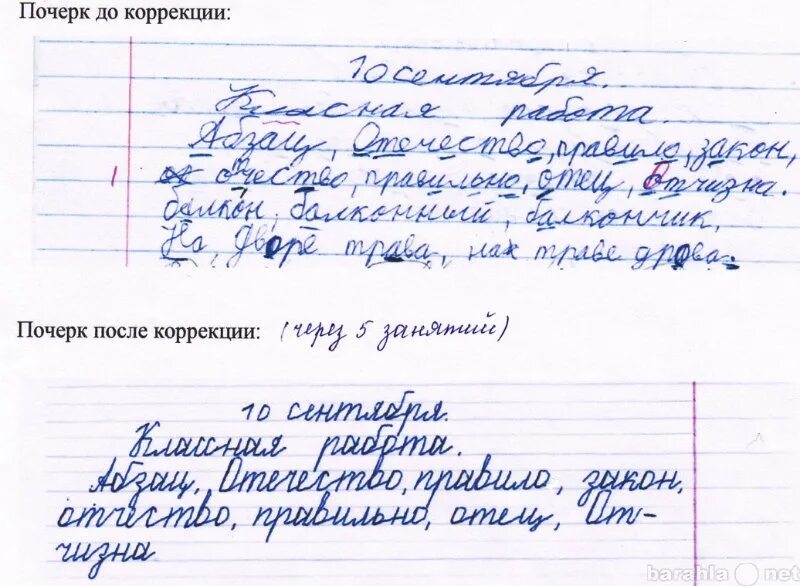 Почерк до коррекции:
10 сентября.
Класная работа.
Абзац, Отечество, правило, закон,
1 отчество, правильно, отец, Отчизна.
балкон, балконный, балкончик,
На дворе трава, нах траве дрова.
Почерк после коррекции: (через 5 занятий)
10 сентября.
Классная работа.
Абзац, Отечество, правило, закон,
отчество, правильно, отец, От-
чизна
barahla net